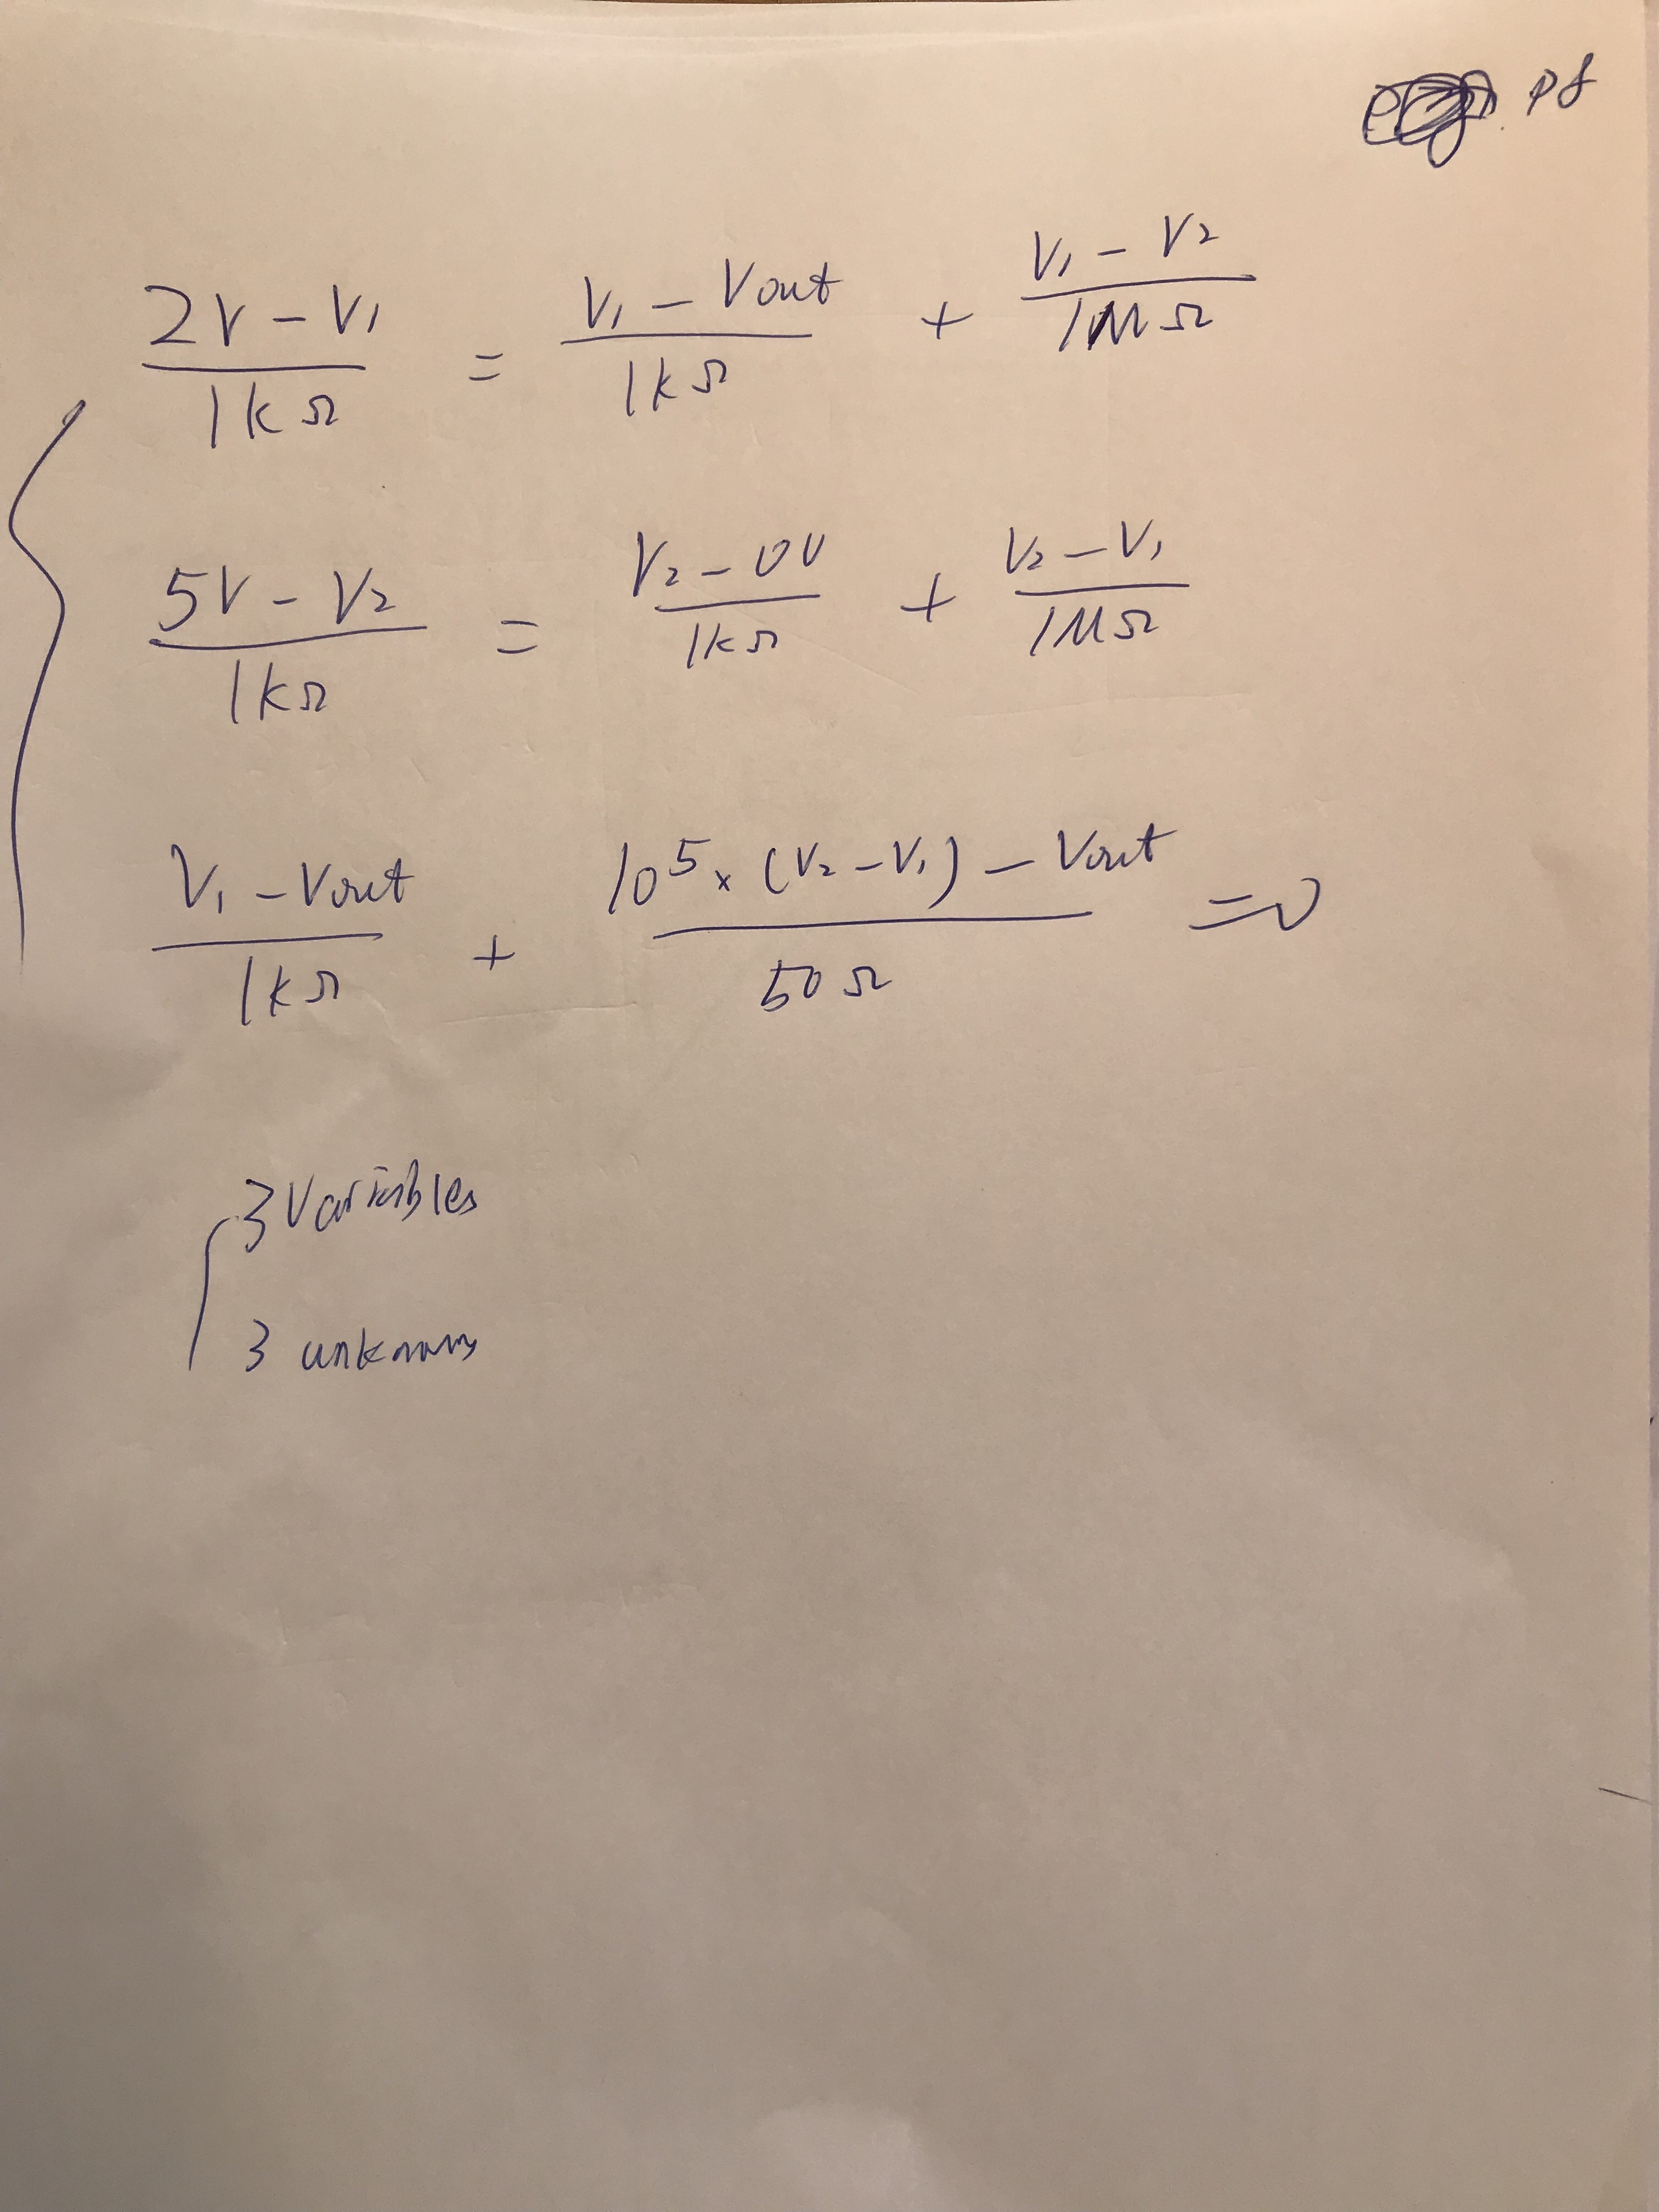 P8
2V - V₁ / 1kΩ = V₁ - Vout / 1kΩ + V₁ - V₂ / 1MΩ
5V - V₂ / 1kΩ = V₂ - 0V / 1kΩ + V₂ - V₁ / 1MΩ
V₁ - Vout / 1kΩ + 10⁵ × (V₂ - V₁) - Vout / 50Ω = 0
3 Variables
3 unknowns